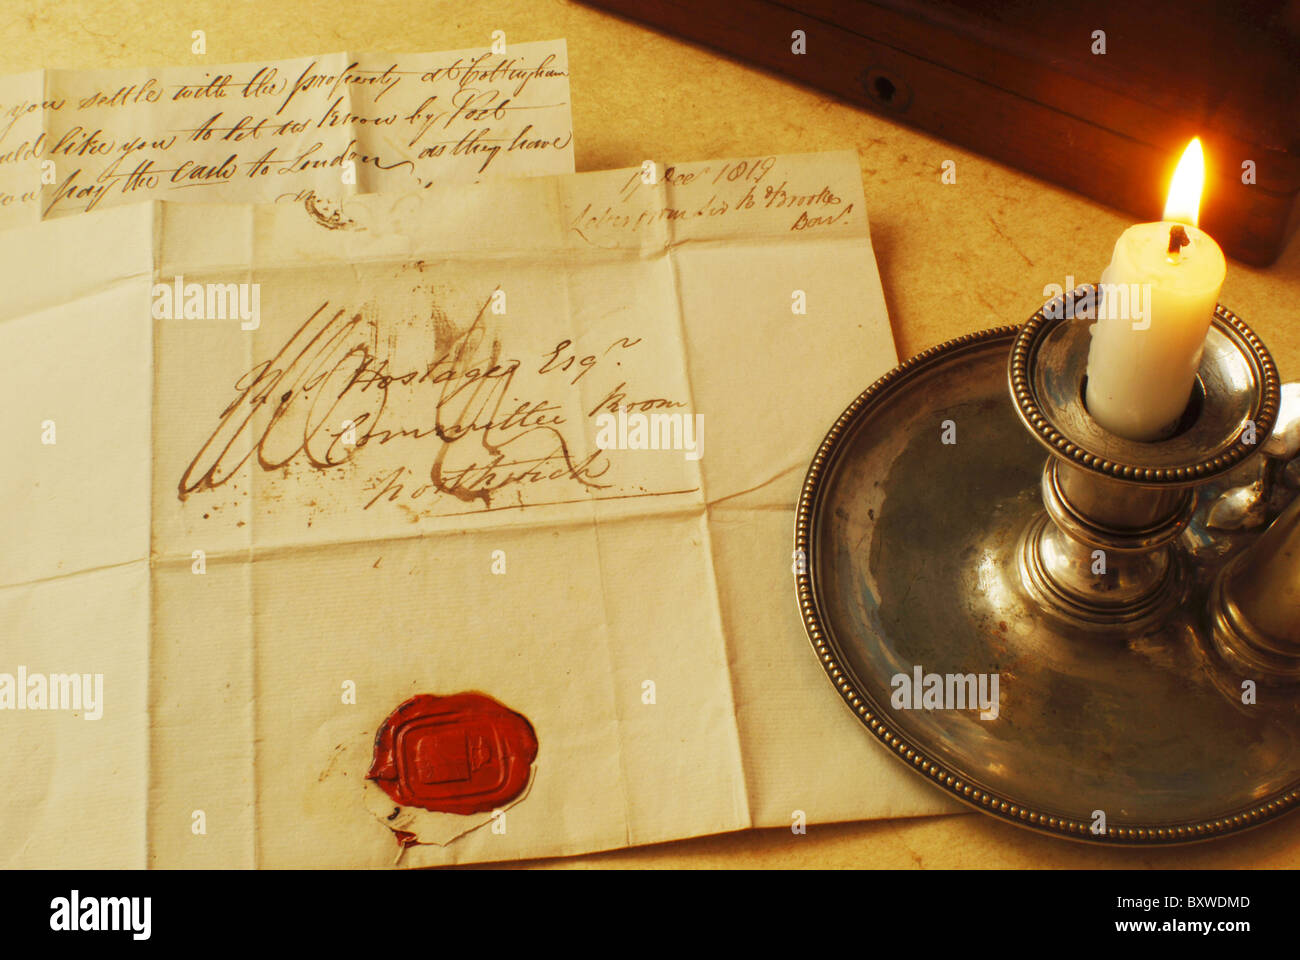 you settle with the property at Cottingham
uld like you to let us know by Post
you pay the cash to London as they have
17 Decr 1819
Letter from Sir Rd Brooke
Bart.
Hostage Esqr.
Committee Room
Northwich
alamy
alamy
alamy
alamy
alamy
Image ID: BXWDMD
www.alamy.com